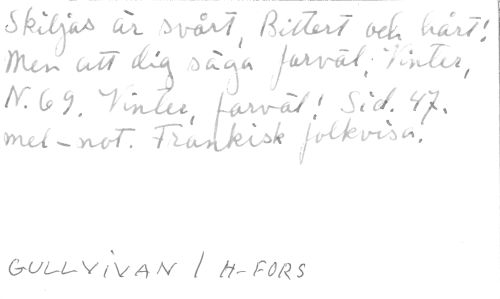 Skiljas är svårt, Bittert och hårt!
Men att dig säga farväl, Vinter,
N. 69. Vinter, farväl! Sid. 47.
mel-not. Frankisk folkvisa.
GULLVIVAN / H-FORS